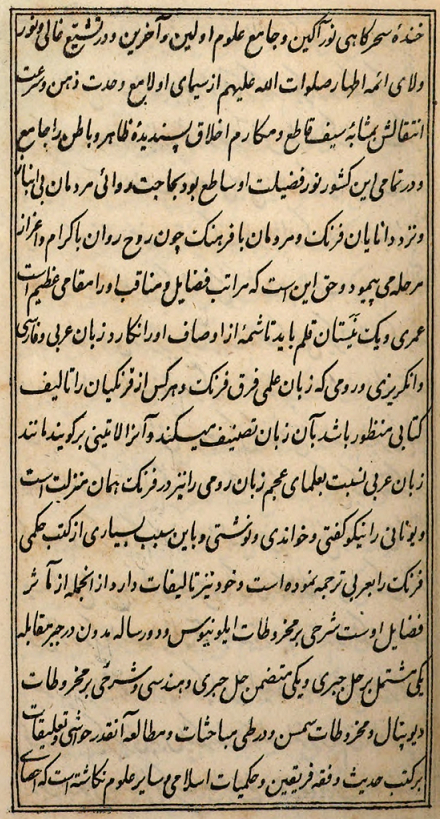 خندهٔ سحرکاهی نور آکین و جامع علوم اولین و آخرین و در تشیع غالی و نور
ولای ائمه اطهار صلوات الله علیهم از سیمای او لامع وحدت ذهن و سرعت
انتقالش بمثابهٔ سیف قاطع و مکارم اخلاق پسندیدهٔ ظاهر و باطن را جامع
و در تمامی این کشور نور فضیلت او ساطع بود بحاجت روائی مردمان بی انباز
و نزد دانایان فرنک و مردمان با فرهنک چون روح روان باکرام و اعزاز
مرحله می پیمود و حق این است که مراتب فضایل و مناقب او را مقامی عظیم است
عمری و یک نَیَستان قلم باید تا شمهٔ از اوصاف او را نکارد زبان عربی و فارسی
و انکریزی و رومی که زبان علمی فرق فرنک و هر کس از فرنکیان را تالیف
کتابی منظور باشد بآن زبان تصنیف میکند و آنرا لاتینی برکویند مانند
زبان عربی نسبت بعلمای عجم زبان رومی را نیز در فرنک همان منزلت است
و یونانی را نیکو کفتی و خواندی و نوشتی و باین سبب بسیاری از کتب حکمی
فرنک را بعربی ترجمه نموده است و خود نیز تالیفات دارد از انجمله از مآثر
فضایل اوست شرحی بر مخروطات ابلونیوس و دو رساله مدون در جبر مقابله
یکی مشتمل بر حل جبری و یکی متضمن حل جبری و هندسی و شرحی بر مخروطات
دیوپنال و مخروطات سمسن و در طی مباحثات و مطالعه آنقدر حواشی و تعلیقات
بر کتب حدیث و فقه فریقین و حکمیات اسلامی و سایر علوم نکاشته است که احصای